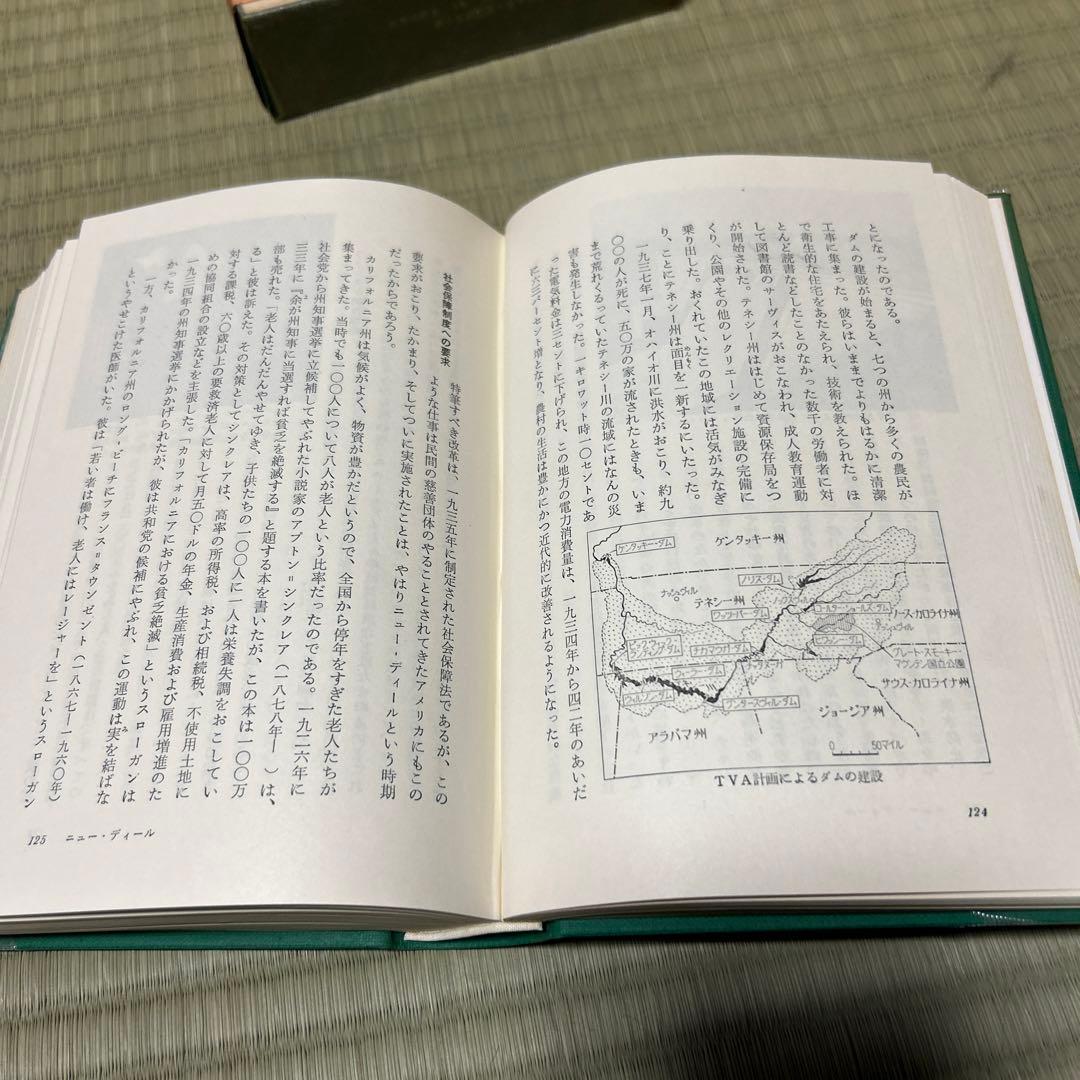 とになったのである。
ダムの建設が始まると、七つの州から多くの農民が
工事に集まった。彼らはいままでよりもはるかに清潔
で衛生的な住宅をあたえられ、技術を教えられた。ほ
とんど読書などしたことのなかった数千の労働者に対
して図書館のサーヴィスがおこなわれ、成人教育運動
が開始された。テネシー州ははじめて資源保存局をつ
くり、公園やその他のレクリエーション施設の完備に
乗り出した。おくれていたこの地域には活気がみなぎ
り、ことにテネシー州は面目を一新するにいたった。
めんもく
一九三七年一月、オハイオ川に洪水がおこり、約九
〇〇の人が死に、五〇万の家が流されたときも、いま
まで荒れくるっていたテネシー川の流域にはなんの災
害も発生しなかった。一キロワット時一〇セントであ
った電気料金は三セントに下げられ、この地方の電力消費量は、一九三四年から四二年のあいだ
に六三パーセント増となり、農村の生活は豊かにかつ近代的に改善されるようになった。
ケンタッキー・ダム
ケンタッキー州
ノリス・ダム
ナッシュヴィル
テネシー州
ノックスヴィル
ワッツ・バー・ダム
ノース・カロライナ州
グレート・スモーキー・
マウンテン国立公園
チカマウガ・ダム
サウス・カロライナ州
ウィルソン・ダム
ガンタースヴィル・ダム
ジョージア州
アラバマ州
0 50マイル
TVA計画によるダムの建設
124
社会保障制度への要求
特筆すべき改革は、一九三五年に制定された社会保障法であるが、この
ような仕事は民間の慈善団体のやることとされてきたアメリカにもこの
要求がおこり、たかまり、そしてついに実施されたことは、やはりニュー・ディールという時期
だったからであろう。
カリフォルニア州は気候がよく、物資が豊かだというので、全国から停年をすぎた老人たちが
集まってきた。当時でも一〇〇人について八人が老人という比率だったのである。一九二六年に
社会党から州知事選挙に立候補してやぶれた小説家のアプトン＝シンクレア（一八七八年― ）は、
三三年に『余が州知事に当選すれば貧乏を絶滅する』と題する本を書いたが、この本は一〇〇万
よ
部も売れた。「老人はだんだんやせてゆき、子供たちの一〇〇人に一人は栄養失調をおこしてい
る」と彼は訴えた。その対策としてシンクレアは、高率の所得税、および相続税、不使用土地に
対する課税、六〇歳以上の要救済老人に対して月五〇ドルの年金、生産消費および雇用増進のた
めの協同組合の設立などを主張した。「カリフォルニアにおける貧乏絶滅」というスローガンは
一九三四年の州知事選挙にかかげられたが、彼は共和党の候補にやぶれ、この運動は実を結ばな
み
かった。
一方、カリフォルニア州のロング・ビーチにフランス＝タウンゼント（一八六七―一九六〇年）
というやせこけた医師がいた。彼は「若い者は働け、老人にはレージャーを」というスローガン
125 ニュー・ディール